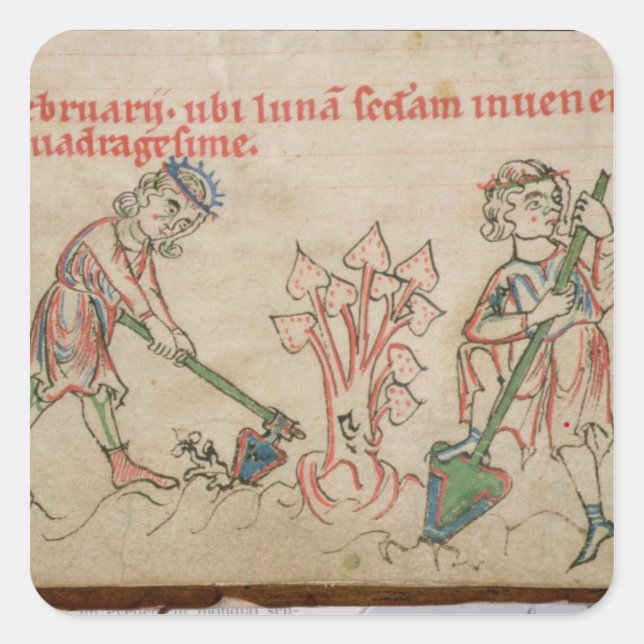 ebruarii. ubi lunã secdam inuene
uadragesime.